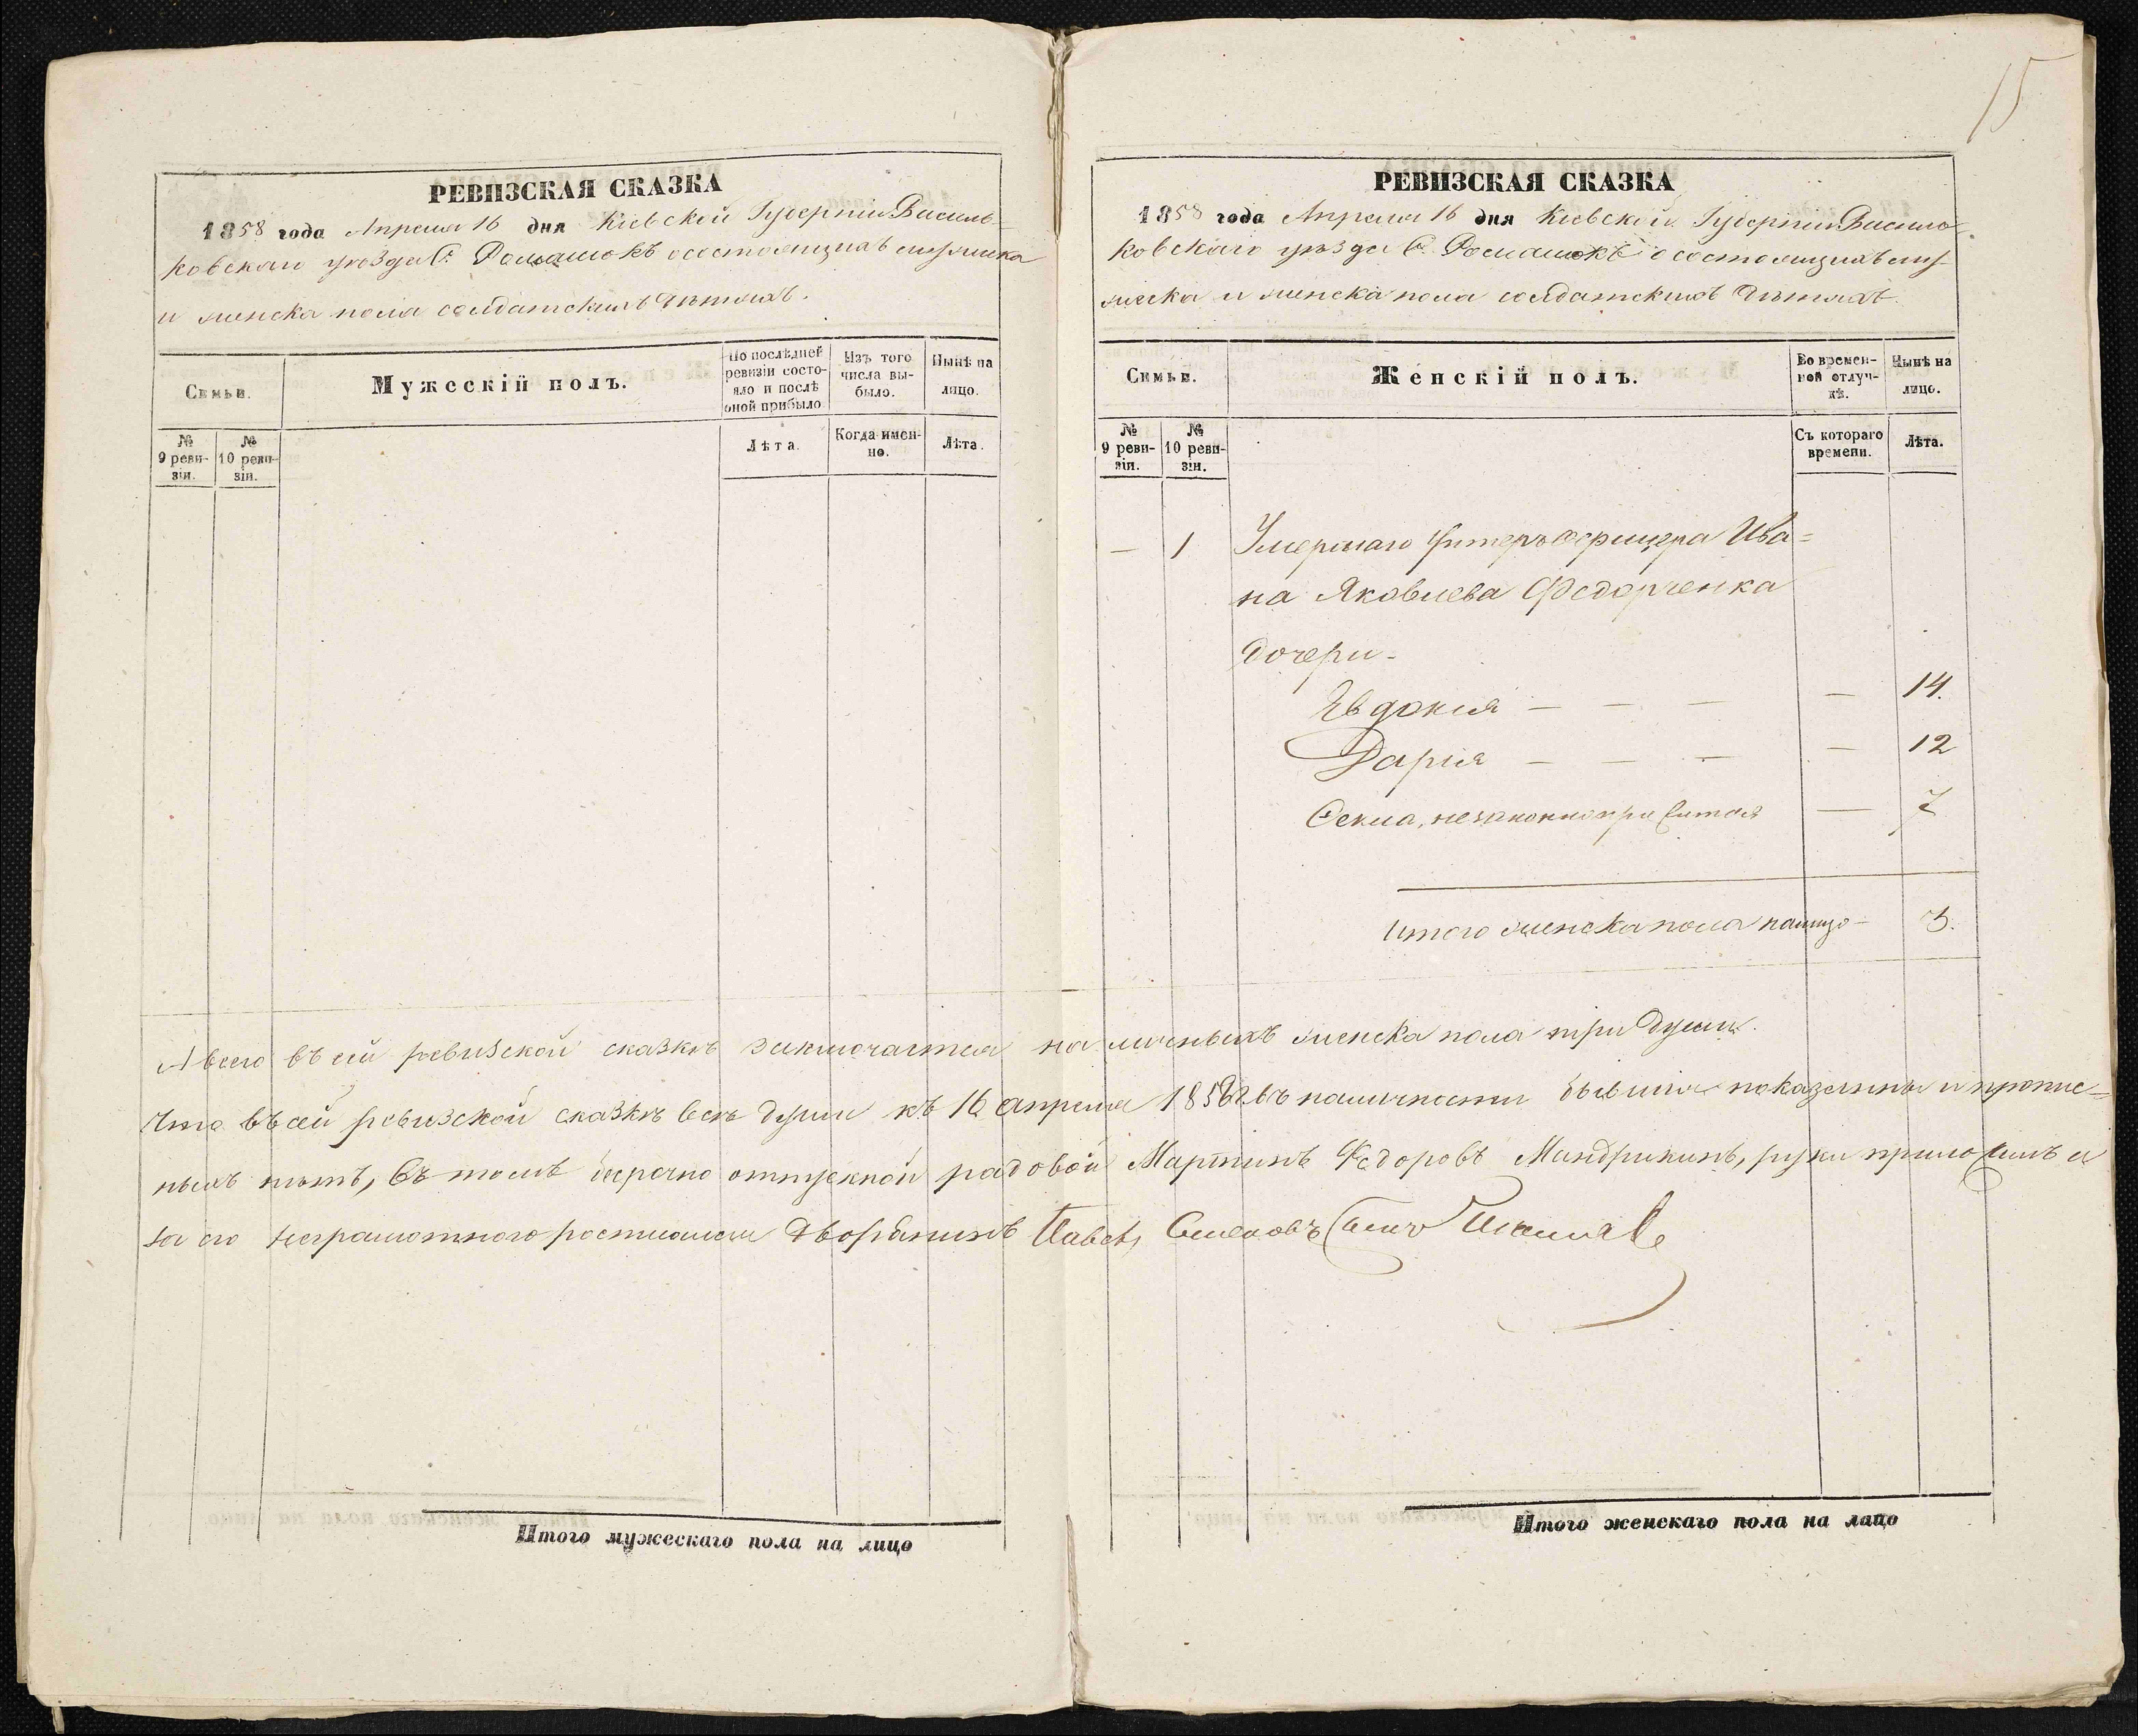 15
РЕВИЗСКАЯ СКАЗКА
1858 года Апреля 16 дня Кіевской Губерніи Василь-
ковскаго уѣзда С. Ромашокъ о состоящихъ мужеска
и женска пола солдатскихъ дѣтяхъ.
Семьи.
Мужескій полъ.
По послѣдней ревизіи состо-яло и послѣ оной прибыло.
Изъ того числа вы-было.
Нынѣ на лицо.
№ 9 реви-зіи.
№ 10 реви-зіи.
Лѣта.
Когда имен-но.
Лѣта.
РЕВИЗСКАЯ СКАЗКА
1858 года Апреля 16 дня Кіевской Губерніи Василь-
ковскаго уѣзда С. Ромашокъ о состоящихъ му-
жеска и женска пола солдатскихъ дѣтяхъ.
Семьи.
Женскій полъ.
Во времен-ной отлуч-кѣ.
Нынѣ на лицо.
№ 9 реви-зіи.
№ 10 реви-зіи.
Съ котораго времени.
Лѣта.
— 1 Умершаго Унтеръ Офицера Ива=
на Яковлева Федорченка
дочери-
Евдокия — — — — 14.
Дария — — — — 12
Фекла, незаконноприжитая — 7
Итого женска пола налицо - 3.
А всего въ сей ревизской сказкѣ заключается наличныхъ женска пола три души.
Что въ сей ревизской сказкѣ всѣ души къ 16 апреля 1858 г. въ наличности бывшия показанны и прописныхъ=
ныхъ нѣтъ, въ томъ безсрочно отпускной рядовой Мартинъ Федоровъ Мандрикинъ, руку приложилъ а
за его неграмотного росписался Дворянинъ Павелъ Семеновъ сынъ
Итого мужескаго пола на лицо
Итого женскаго пола на лицо